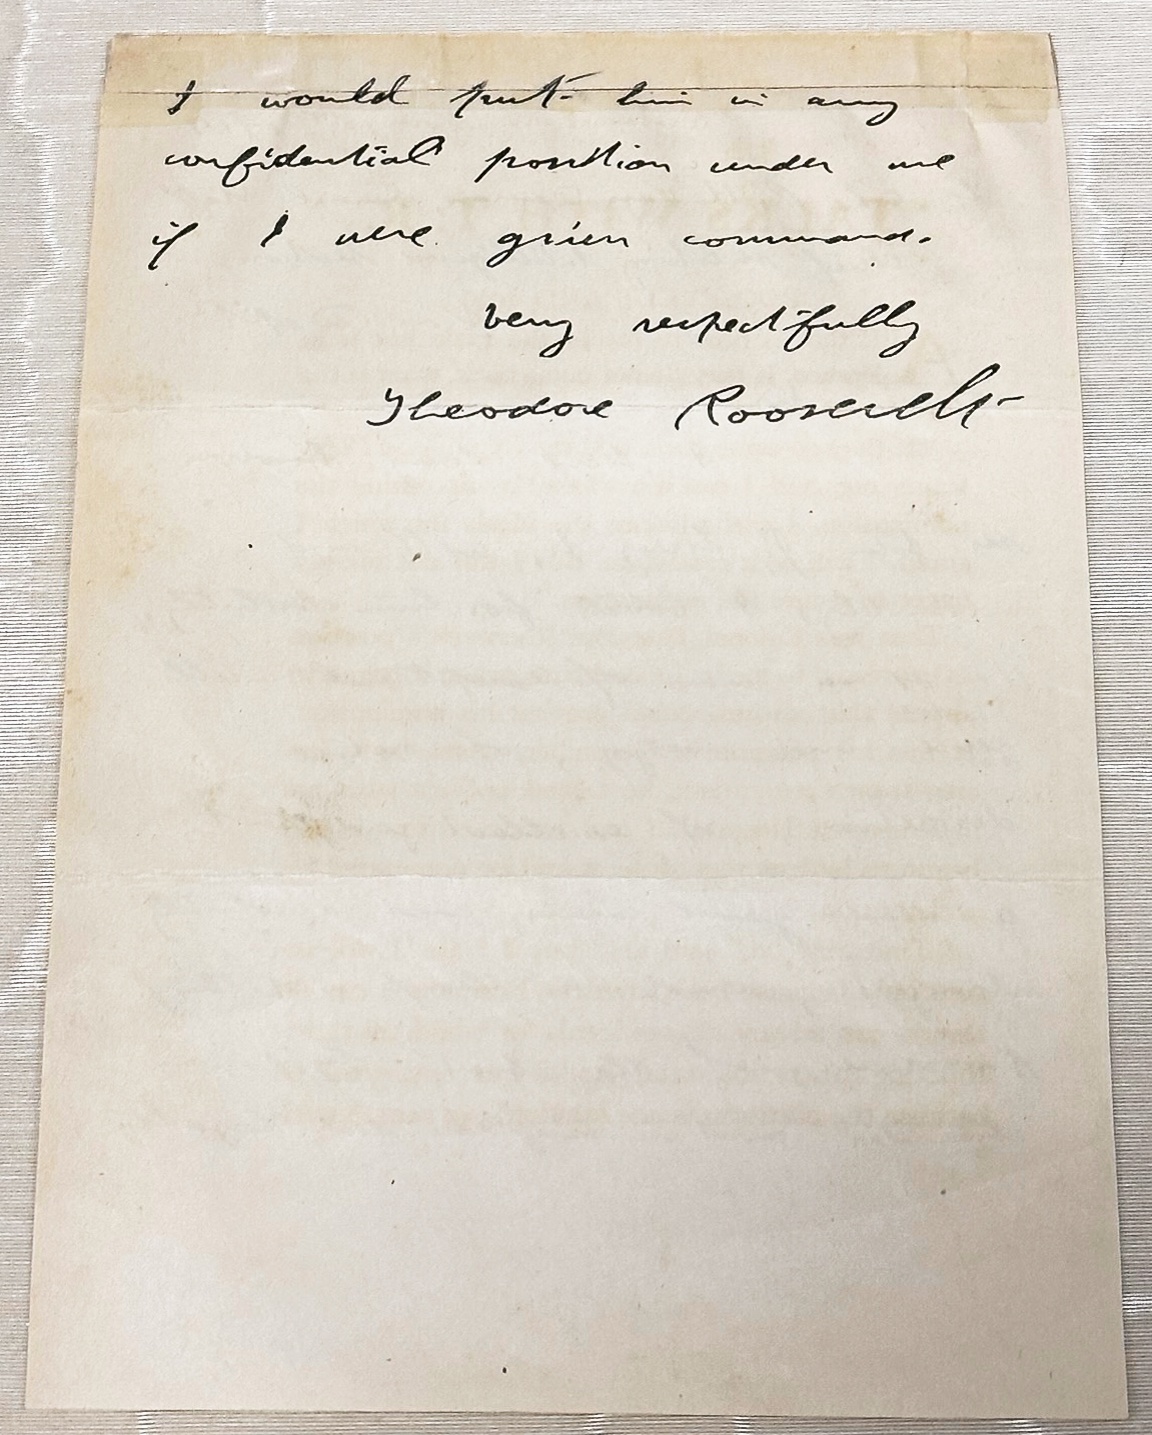 I would put him in any
confidential position under me
if I were given command.
very respectfully
Theodore Roosevelt